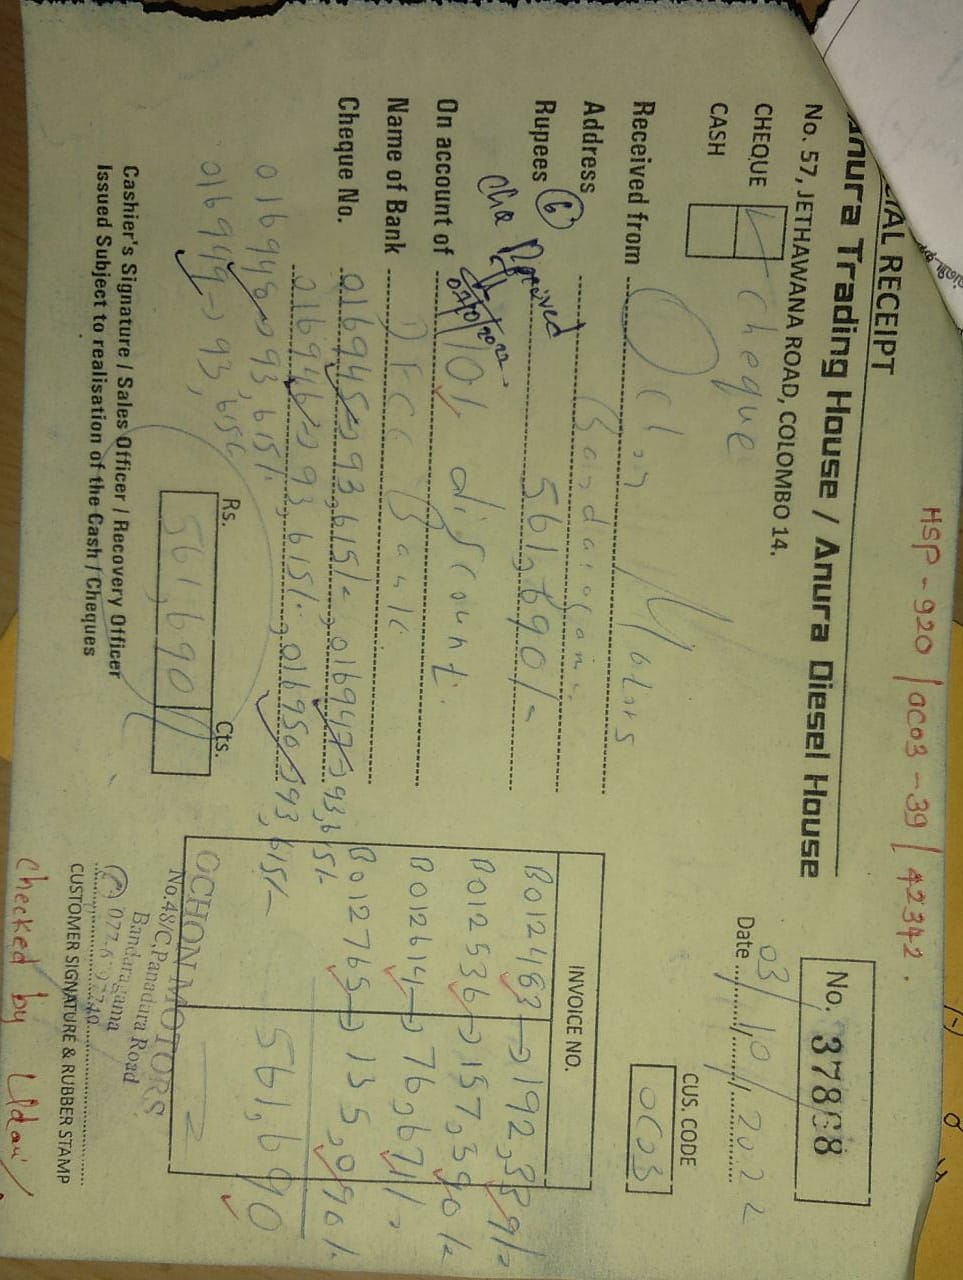 HSP-920 / OC03-39 / 42342.
CIAL RECEIPT
Anura Trading House / Anura Diesel House
No. 57, JETHAWANA ROAD, COLOMBO 14.
No. 37868
CHEQUE cheque
CASH
Date 03/10/2022
CUS. CODE
OC03
Received from Ochon Motors
Address Bandaragama.
Rupees 6 561,690/-
Received
07/10/2022
On account of 10% discount.
Name of Bank DFCC Bank
Cheque No. 016945→93,615/-, 016947→93,615/-
016946→93,615/-, 016950→93,615/-
016948→93,615/-
016949→93,615/-
INVOICE NO.
B012483→192,339/-
B012536→157,590/-
B012614→76,671/-
B012765→135,090/-
561,690
Rs. Cts.
561,690
OCHON MOTORS
No.48/C,Panadura Road
Bandaragama
Cashier's Signature / Sales Officer / Recovery Officer
Issued Subject to realisation of the Cash / Cheques
CUSTOMER SIGNATURE & RUBBER STAMP
Checked by Udani